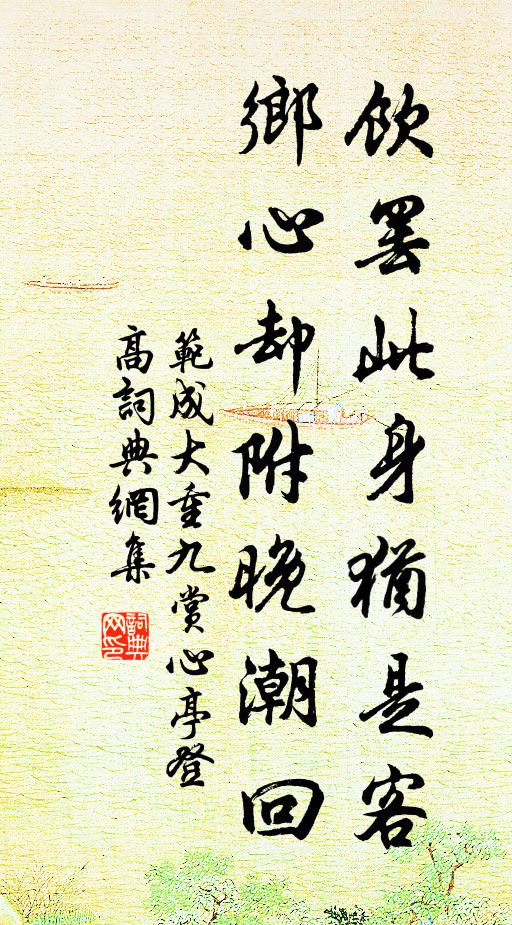 飲罷此身猶是客
鄉心却附晚潮回
範成大重九賞心亭登
高詞典網集
詞典网印